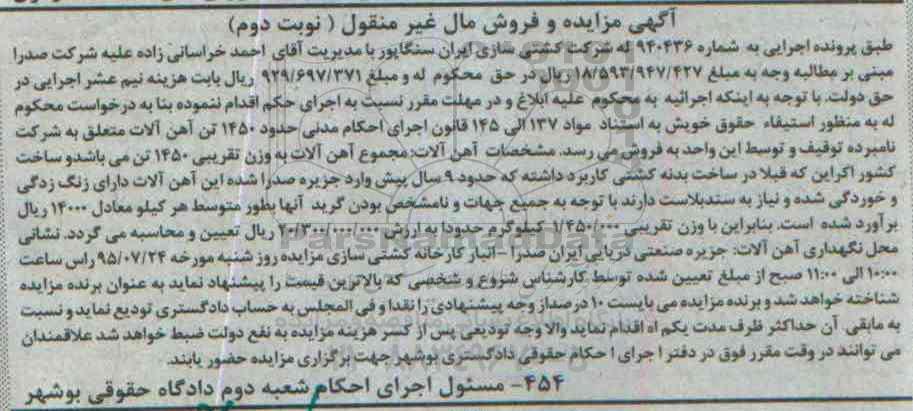 آگهی مزایده و فروش مال غیر منقول ( نوبت دوم)
طبق پرونده اجرایی به شماره ۹۴۰۴۳۶ له شرکت کشتی سازی ایران سنگاپور با مدیریت آقای احمد خراسانی زاده علیه شرکت صدرا
مبنی بر مطالبه وجه به مبلغ ۱۸/۵۹۳/۹۴۷/۴۲۷ ریال در حق محکوم له و مبلغ ۹۲۹/۶۹۷/۳۷۱ ریال بابت هزینه نیم عشر اجرایی در
حق دولت. با توجه به اینکه اجرائیه به محکوم علیه ابلاغ و در مهلت مقرر نسبت به اجرای حکم اقدام ننموده بنا به درخواست محکوم
له به منظور استیفاء حقوق خویش به استناد مواد ۱۳۷ الی ۱۴۵ قانون اجرای احکام مدنی حدود ۱۴۵۰ تن آهن آلات متعلق به شرکت
نامبرده توقیف و توسط این واحد به فروش می رسد. مشخصات آهن آلات: مجموع آهن آلات به وزن تقریبی ۱۴۵۰ تن می باشدو ساخت
کشور اکراین که قبلا در ساخت بدنه کشتی کاربرد داشته که حدود ۹ سال پیش وارد جزیره صدرا شده این آهن آلات دارای زنگ زدگی
و خوردگی شده و نیاز به سندبلاست دارند با توجه به جمیع جهات و نامشخص بودن گرید آنها بطور متوسط هر کیلو معادل ۱۴۰۰۰ ریال
برآورد شده است. بنابراین با وزن تقریبی ۱/۴۵۰/۰۰۰ کیلوگرم حدودا به ارزش ۲۰/۳۰۰/۰۰۰/۰۰۰ ریال تعیین و محاسبه می گردد. نشانی
محل نگهداری آهن آلات: جزیره صنعتی دریایی ایران صدرا -انبار کارخانه کشتی سازی مزایده روز شنبه مورخه ۹۵/۰۷/۲۴ راس ساعت
۱۰:۰۰ الی ۱۱:۰۰ صبح از مبلغ تعیین شده توسط کارشناس شروع و شخصی که بالاترین قیمت را پیشنهاد نماید به عنوان برنده مزایده
شناخته خواهد شد و برنده مزایده می بایست ۱۰ درصداز وجه پیشنهادی را نقدا و فی المجلس به حساب دادگستری تودیع نماید و نسبت
به مابقی آن حداکثر ظرف مدت یکم اه اقدام نماید والا وجه تودیعی پس از کسر هزینه مزایده به نفع دولت ضبط خواهد شد علاقمندان
می توانند در وقت مقرر فوق در دفتر ا جرای ا حکام حقوقی دادگستری بوشهر جهت برگزاری مزایده حضور یابند.
۴۵۴- مسئول اجرای احکام شعبه دوم دادگاه حقوقی بوشهر
ParsNamadData